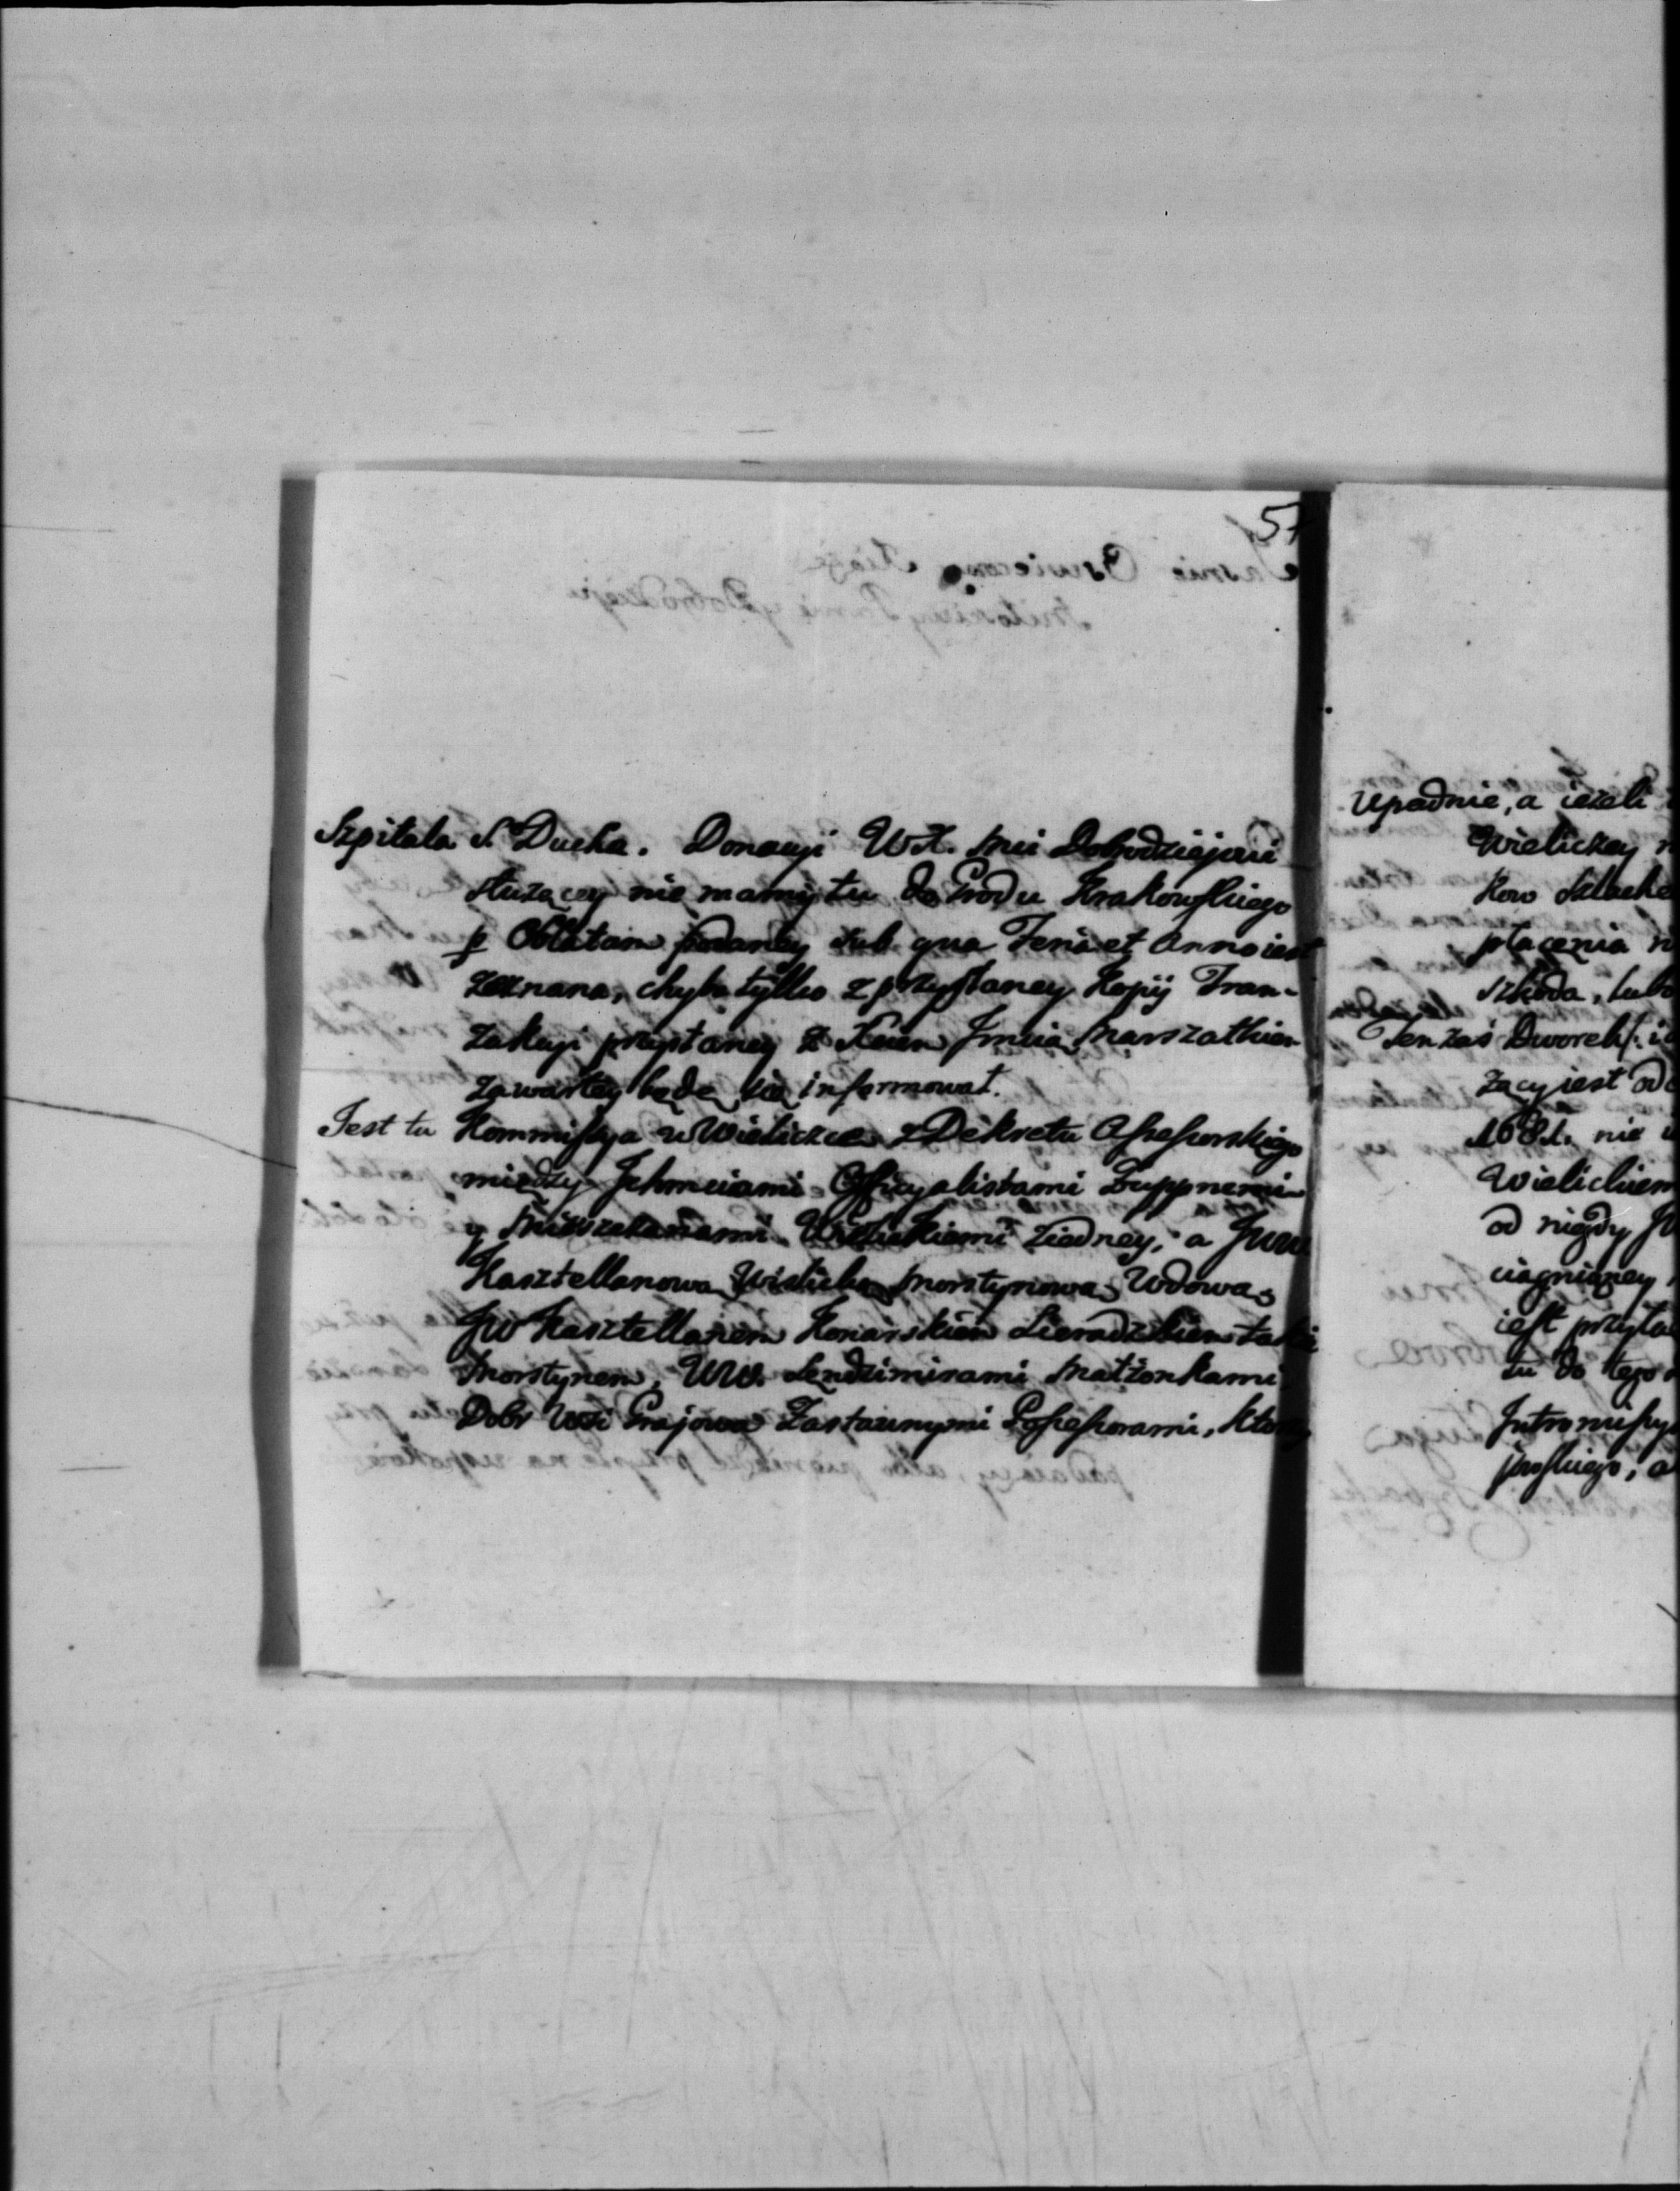 57
Szpitala S. Ducha. Donacyi WX. Mci Dobrodziejowi
służącey nie mamy tu do Grodu Krakowskiego
p Oblatam podaney sub qua Feria et Anno iest
zeznana, chyba tylko z przysłaney Kopij Tran-
zakcyi przysłaney z Xciem Jmcią Marszałkiem
zawartey będę się informował.
Jest tu Kommissya w Wieliczce z Dekretu Assessorskiego
między Jchmciami Officyalistami Zuppnemi
y Mieszczanami Wielickiemi ziedney, a JWW
Kasztellanową Wislicką Morstynową Wdową
JW Kasztellanem Konarskim Sieradzkim
Morstynem, WW. Sendzimirami Małżonkami
Dobr Wsi Grajowa Zastawnymi Possessorami, ktorzy
Upadnie, a ieżeli
Wieliczey
kow Szlache
płacenia
szkoda, lubo
Ten zaś Dworek
zący jest od
1681. nie
Wielickiem
od nigdy
ciągnioney
iest przyła
tu do tego
Intromissy
pruskiego, a